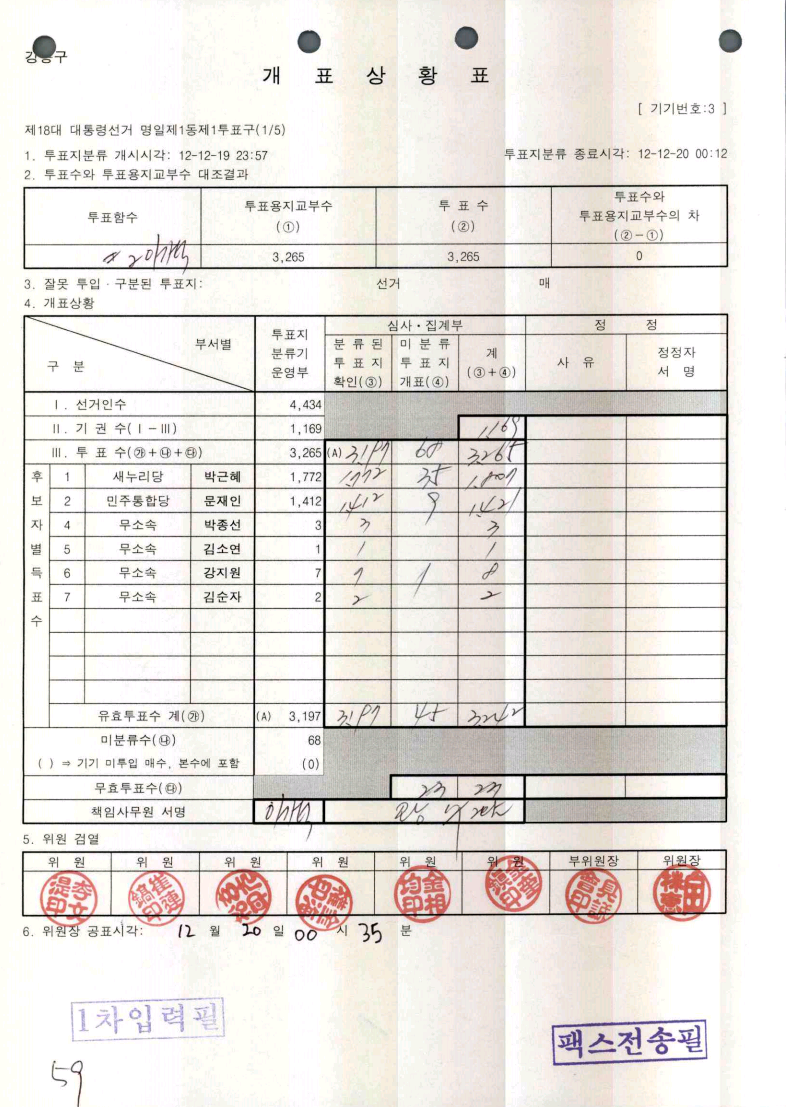 강동구
개 표 상 황 표
[ 기기번호:3 ]
제18대 대통령선거 명일제1동제1투표구(1/5)
1. 투표지분류 개시시각: 12-12-19 23:57 투표지분류 종료시각: 12-12-20 00:12
2. 투표수와 투표용지교부수 대조결과
투표함수 투표용지교부수 (①) 투 표 수 (②) 투표수와 투표용지교부수의 차 (②-①)
3,265 3,265 0
3. 잘못 투입ㆍ구분된 투표지: 선거 매
4. 개표상황
구 분 부서별 투표지 분류기 운영부 심사ㆍ집계부 정 정
분 류 된 투 표 지 확인(③) 미 분 류 투 표 지 개표(④) 계 (③+④) 사 유 정정자 서 명
Ⅰ. 선거인수 4,434
Ⅱ. 기 권 수(Ⅰ-Ⅲ) 1,169 1,169
Ⅲ. 투 표 수(㉮+㉯+㉰) 3,265 (A) 3,197 68 3,265
후보자별득표수
1 새누리당 박근혜 1,772 1,772 35 1,807
2 민주통합당 문재인 1,412 1,412 9 1,421
4 무소속 박종선 3 3 3
5 무소속 김소연 1 1 1
6 무소속 강지원 7 7 1 8
7 무소속 김순자 2 2 2
유효투표수 계(㉮) (A) 3,197 3,197 45 3,242
미분류수(㉯) 68
( ) ⇒ 기기 미투입 매수, 본수에 포함 (0)
무효투표수(㉰) 23 23
책임사무원 서명
5. 위원 검열
위 원 위 원 위 원 위 원 위 원 위 원 부위원장 위원장
6. 위원장 공표시각: 12 월 20 일 00 시 35 분
1차입력필
팩스전송필
59